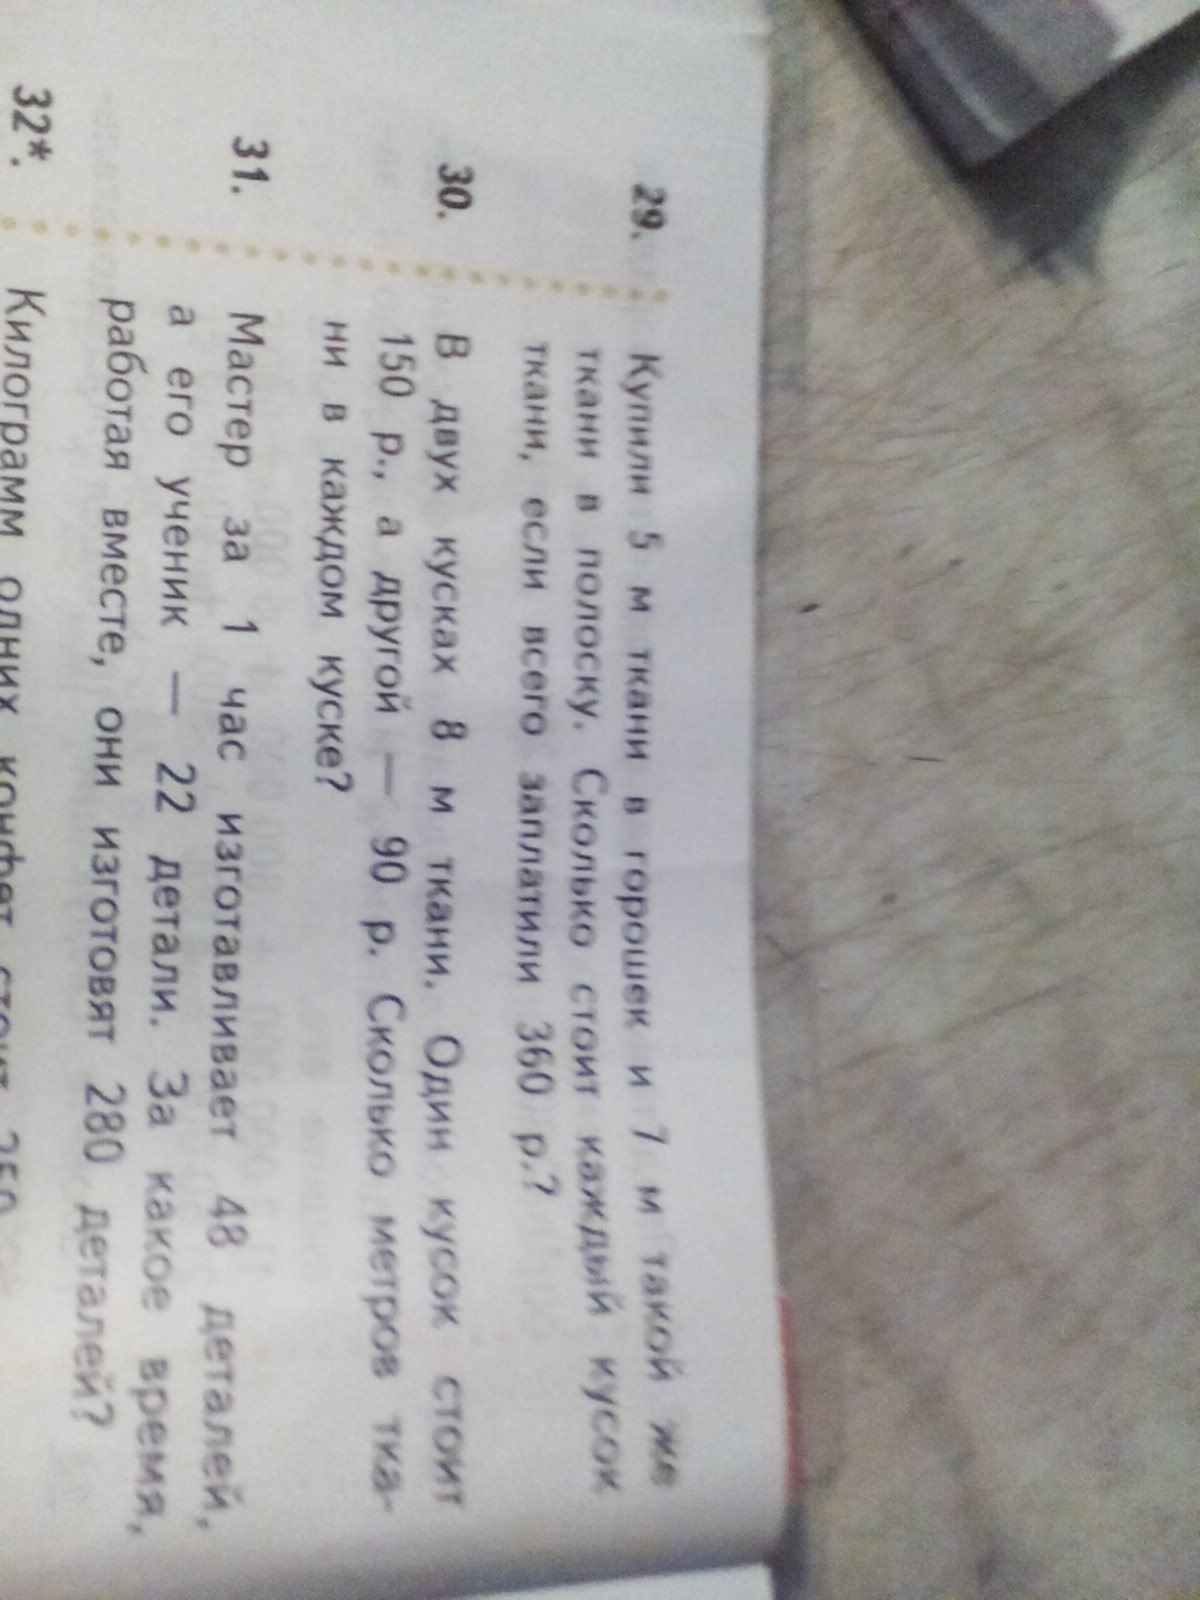 29. Купили 5 м ткани в горошек и 7 м такой же
ткани в полоску. Сколько стоит каждый кусок
ткани, если всего заплатили 360 р.?
30. В двух кусках 8 м ткани. Один кусок стоит
150 р., а другой — 90 р. Сколько метров тка-
ни в каждом куске?
31. Мастер за 1 час изготавливает 48 деталей,
а его ученик — 22 детали. За какое время,
работая вместе, они изготовят 280 деталей?
32*. Килограмм одних конфет стоит